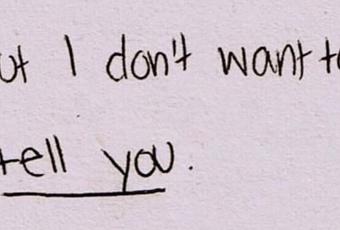 ut I don't want to
tell you.